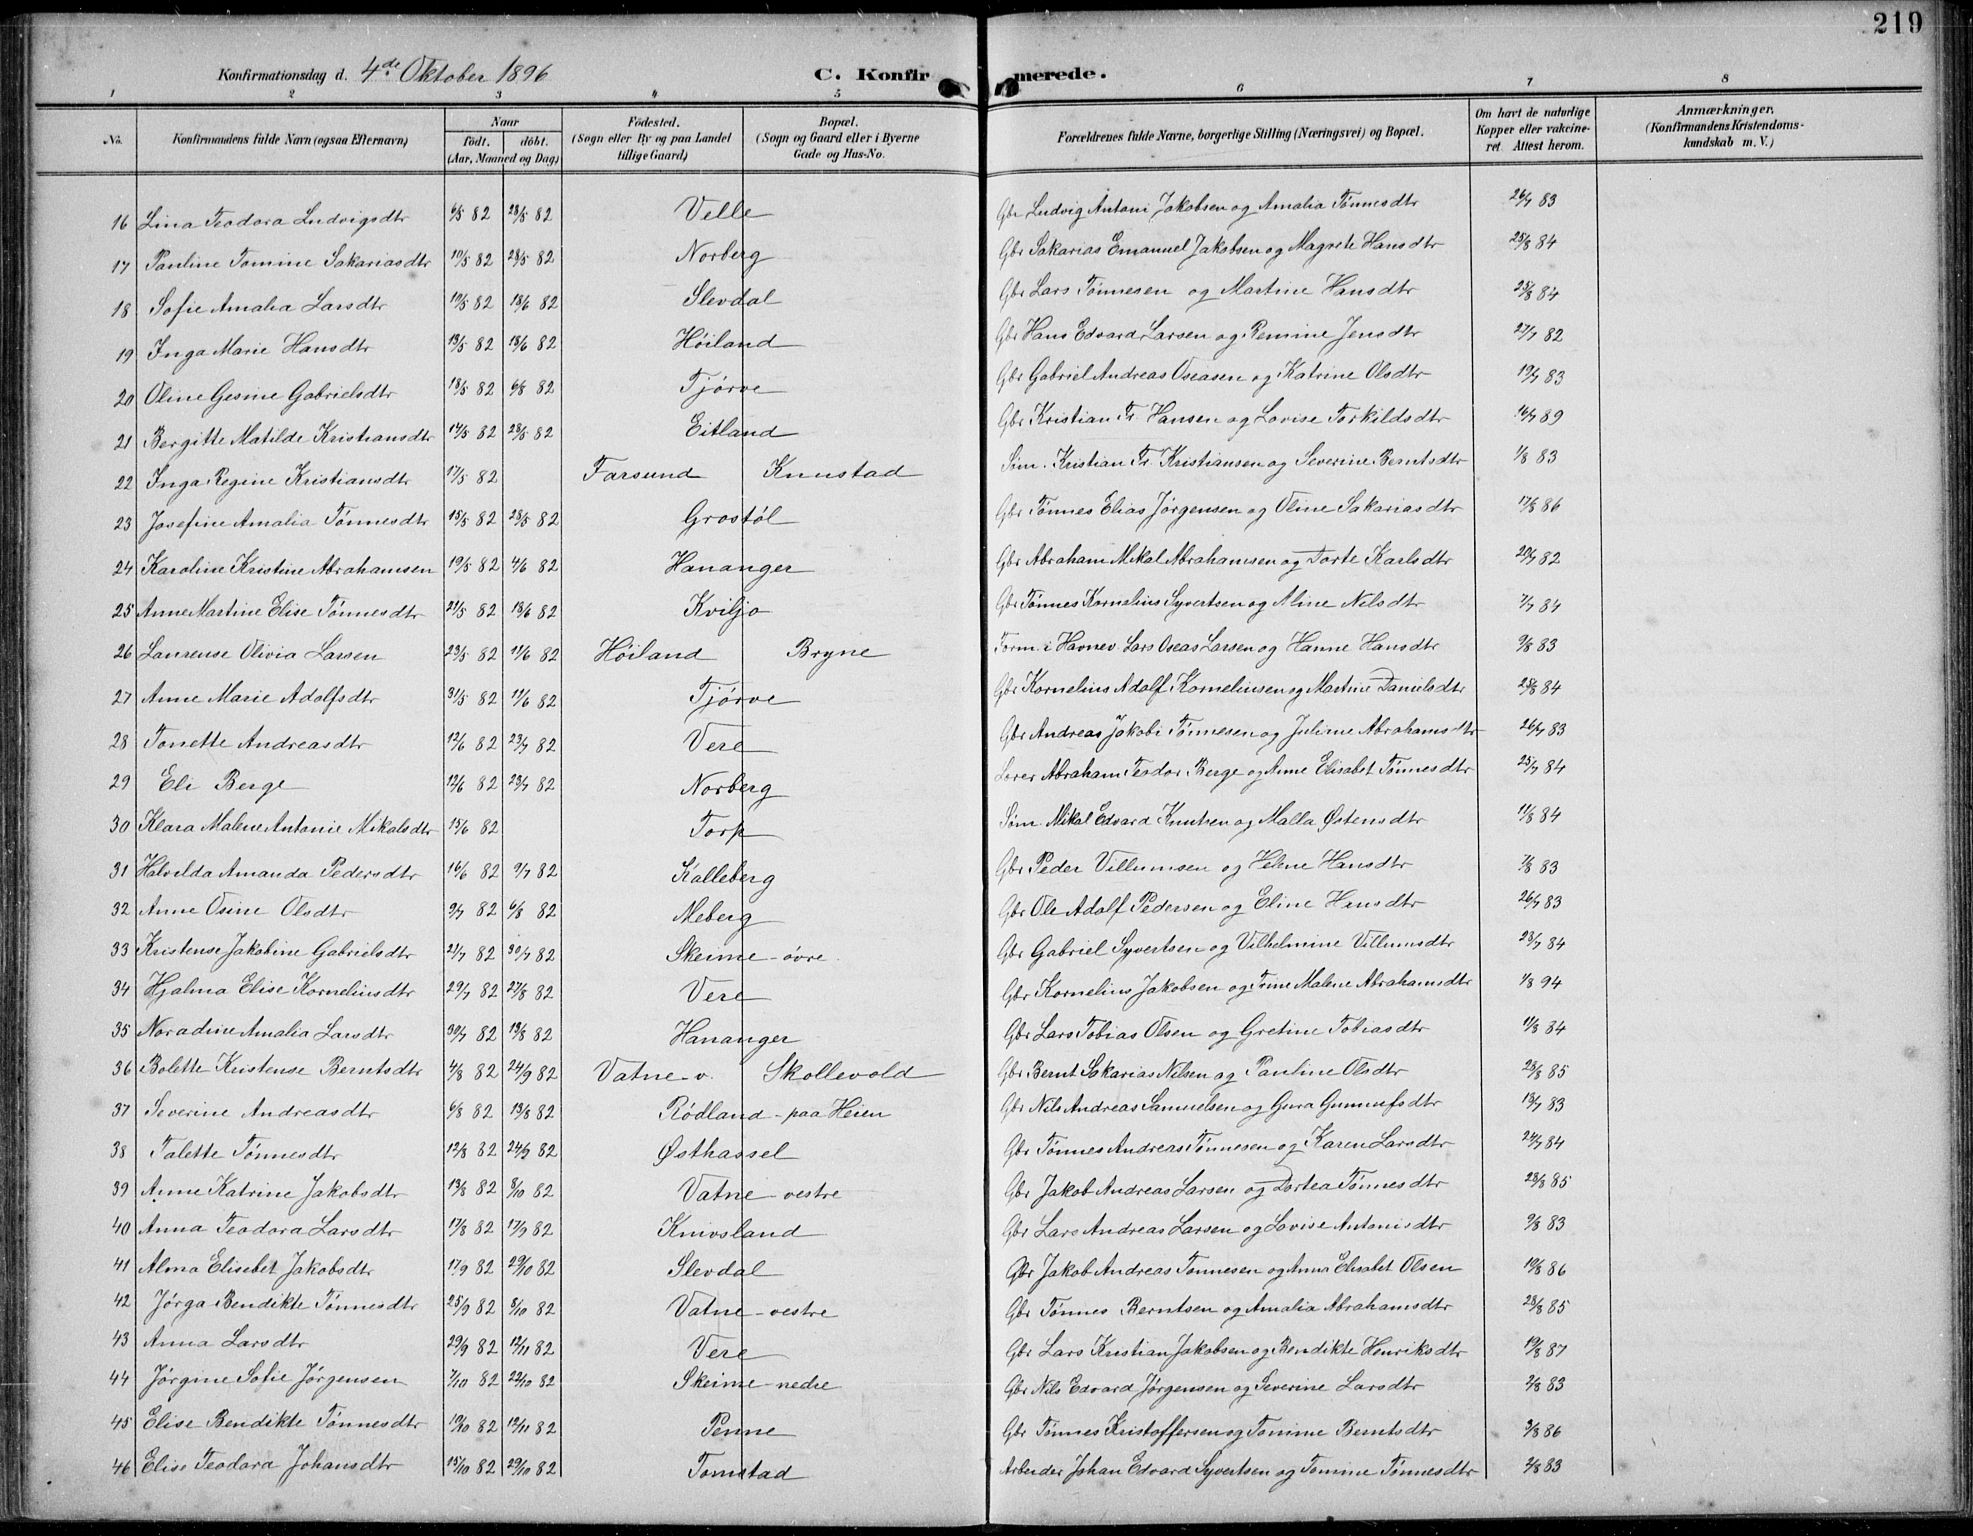 219
Konfirmationsdag d. 4de Oktober 1896 C. Konfirmerede.
1 2 3 4 5 6 7 8
No. Konfirmandens fulde Navn (ogsaa Efternavn) Naar født. døbt. (Aar, Maaned og Dag) Fødested. (Sogn eller By og paa Landet tillige Gaard) Bopæl. (Sogn og Gaard eller i Byerne Gade og Hus-No. Forældrenes fulde Navne, borgerlige Stilling (Næringsvei) og Bopæl. Om havt de naturlige Kopper eller vakcineret Attest herom. Anmærkninger. (Konfirmandens Kristendomskundskab m. V.)
16 Lina Teodora Ludvigsdtr 6/5 82 28/5 82 Velle Gbr Ludvig Antoni Jakobsen og Amalia Tønnesdtr 26/7 83
17 Pauline Tomine Sakariasdtr 10/5 82 28/5 82 Norberg Gbr Sakarias Emanuel Jakobsen og Magrete Hansdtr 25/8 84
18 Sofie Amalia Larsdtr 10/5 82 18/6 82 Slevdal Gbr Lars Tønnesen og Martine Hansdtr 25/8 84
19 Inga Marie Hansdtr 13/5 82 18/6 82 Høiland Gbr Hans Edvard Larsen og Remine Jensdtr 27/7 82
20 Oline Gesine Gabrielsdtr 18/5 82 6/8 82 Tjørve Gbr Gabriel Andreas Oseasen og Katrine Olsdtr 19/7 83
21 Bergitte Matilde Kristiansdtr 14/5 82 28/5 82 Eitland Gbr Kristian Fr. Hansen og Lovise Torkildsdtr 14/7 89
22 Inga Regine Kristiansdtr 17/5 82 Farsund Knustad Søm. Kristian Fr. Kristiansen og Severine Berntsdtr 1/8 83
23 Josefine Amalia Tønnesdtr 15/5 82 28/5 82 Grostøl Gbr Tønnes Elias Jørgensen og Oline Sakariasdtr 17/8 86
24 Karoline Kristine Abrahamsen 19/5 82 4/6 82 Hananger Gbr Abraham Mikal Abrahamsen og Dorte Karlsdtr 20/7 82
25 Anne Martine Elise Tønnesdtr 21/5 82 18/6 82 Kviljo Gbr Tønnes Kornelius Syvertsen og Aline Nilsdtr 7/7 84
26 Laurense Olivia Larsen 23/5 82 11/6 82 Høiland Bryne Form. i Havnev. Lars Oseas Larsen og Hanne Hansdtr 9/8 83
27 Anne Marie Adolfsdtr 31/5 82 11/6 82 Tjørve Gbr Kornelius Adolf Kornelinsen og Martine Danielsdtr 25/8 84
28 Tonette Andreasdtr 12/6 82 23/7 82 Vere Gbr Andreas Jakobi Tønnesen og Juline Abrahamsdtr 26/7 83
29 Eli Berge 12/6 82 23/7 82 Norberg Lærer Abraham Teodor Berge og Anne Elisabet Tønnesdtr 25/7 84
30 Klara Malene Antonie Mikalsdtr 15/6 82 Torp Søm. Mikal Edvard Knutsen og Malla Østensdtr 11/8 84
31 Halvilda Amanda Pedersdtr 16/6 82 9/7 82 Kalleberg Gbr Peder Villumsen og Helene Hansdtr 7/8 83
32 Anne Osine Olsdtr 9/7 82 6/8 82 Meberg Gbr Ole Adolf Pedersen og Eline Hansdtr 26/7 83
33 Kristense Jakobine Gabrielsdtr 21/7 82 30/7 82 Skeime-øvre Gbr Gabriel Syvertsen og Vilhelmine Villumsdtr 23/7 84
34 Hjalma Elise Korneliusdtr 29/7 82 27/8 82 Vere Gbr Kornelius Jakobsen og Trine Malene Abrahamsdtr 1/8 94
35 Noradine Amalia Larsdtr 30/7 82 13/8 82 Hananger Gbr Lars Tobias Olsen og Gretine Tobiasdtr 11/8 84
36 Bolette Kristense Berntsdtr 4/8 82 24/9 82 Vatne-v. Skollevold Gbr Bernt Sakarias Nilsen og Pauline Olsdtr 28/8 85
37 Severine Andreasdtr 6/8 82 13/8 82 Rødland-paa Heien Gbr Nils Andreas Samuelsen og Gura Gunnufsdtr 13/7 83
38 Talette Tønnesdtr 12/8 82 24/9 82 Østhassel Gbr Tønnes Andreas Tønnesen og Karen Larsdtr 24/7 84
39 Anne Katrine Jakobsdtr 13/8 82 8/10 82 Vatne-vestre Gbr Jakob Andreas Larsen og Dortea Tønnesdtr 28/8 85
40 Anna Teodora Larsdtr 17/8 82 17/9 82 Knivsland Gbr Lars Andreas Larsen og Lovise Antonisdtr 9/8 83
41 Alma Elisebet Jakobsdtr 17/9 82 29/10 82 Slevdal Gbr Jakob Andreas Tønnesen og Anna Elisabet Olsen 19/8 86
42 Jørga Bendikte Tønnesdtr 25/9 82 8/10 82 Vatne-vestre Gbr Tønnes Berntsen og Amalia Abrahamsdtr 28/8 85
43 Anna Larsdtr 29/9 82 12/11 82 Vere Gbr Lars Kristian Jakobsen og Bendikte Henriksdtr 19/8 87
44 Jørgine Sofie Jørgensen 7/10 82 22/10 82 Skeime-nedre Gbr Nils Edvard Jørgensen og Severine Larsdtr 2/8 83
45 Elise Bendikte Tønnesdtr 10/10 82 12/11 82 Penne Gbr Tønnes Kristoffersen og Tomine Berntsdtr 3/8 86
46 Elise Teodora Johansdtr 15/10 82 29/10 82 Tomstad Arbeider Johan Edvard Syvertsen og Tomine Tønnesdtr 2/8 83